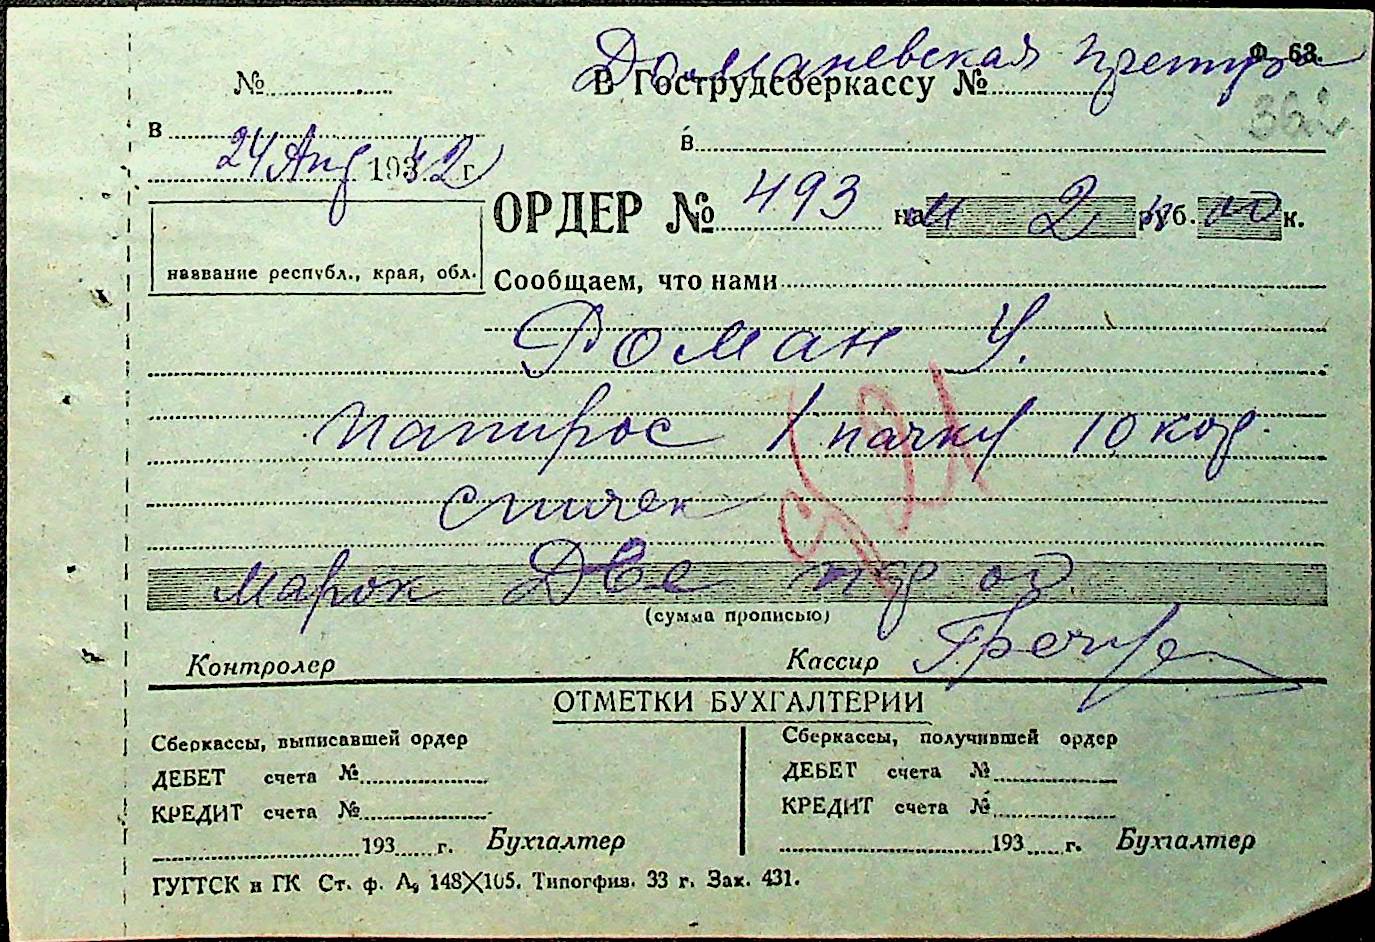 Доманевская претура
Ф. 63.
№
В Гострудсберкассу №
362
в
в
24 Авг 1942 г.
ОРДЕР № 493 на м 2 руб. 00 к.
название республ., края, обл.
Сообщаем, что нами
Роман У.
Папирос 1 пачку 10 кор.
спичек
521
марок Две пф 00
(сумма прописью)
Контролер
Кассир
ОТМЕТКИ БУХГАЛТЕРИИ
Сберкассы, выписавшей ордер
Сберкассы, получившей ордер
ДЕБЕТ счета №
ДЕБЕТ счета №
КРЕДИТ счета №
КРЕДИТ счета №
193 г. Бухгалтер
193 г. Бухгалтер
ГУГТСК и ГК Ст. ф. А5 148×105. Типогфиз. 33 г. Зак. 431.